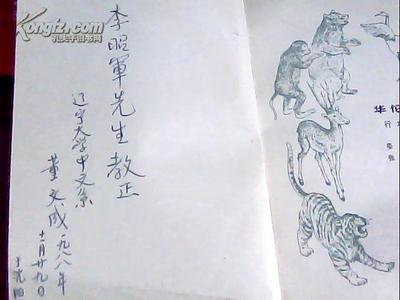 Kongfz.com
孔夫子旧书网
李昭军先生教正
辽宁大学中文系
董文成
一九八八年
十一月廿九日
于沈阳
华佗
行